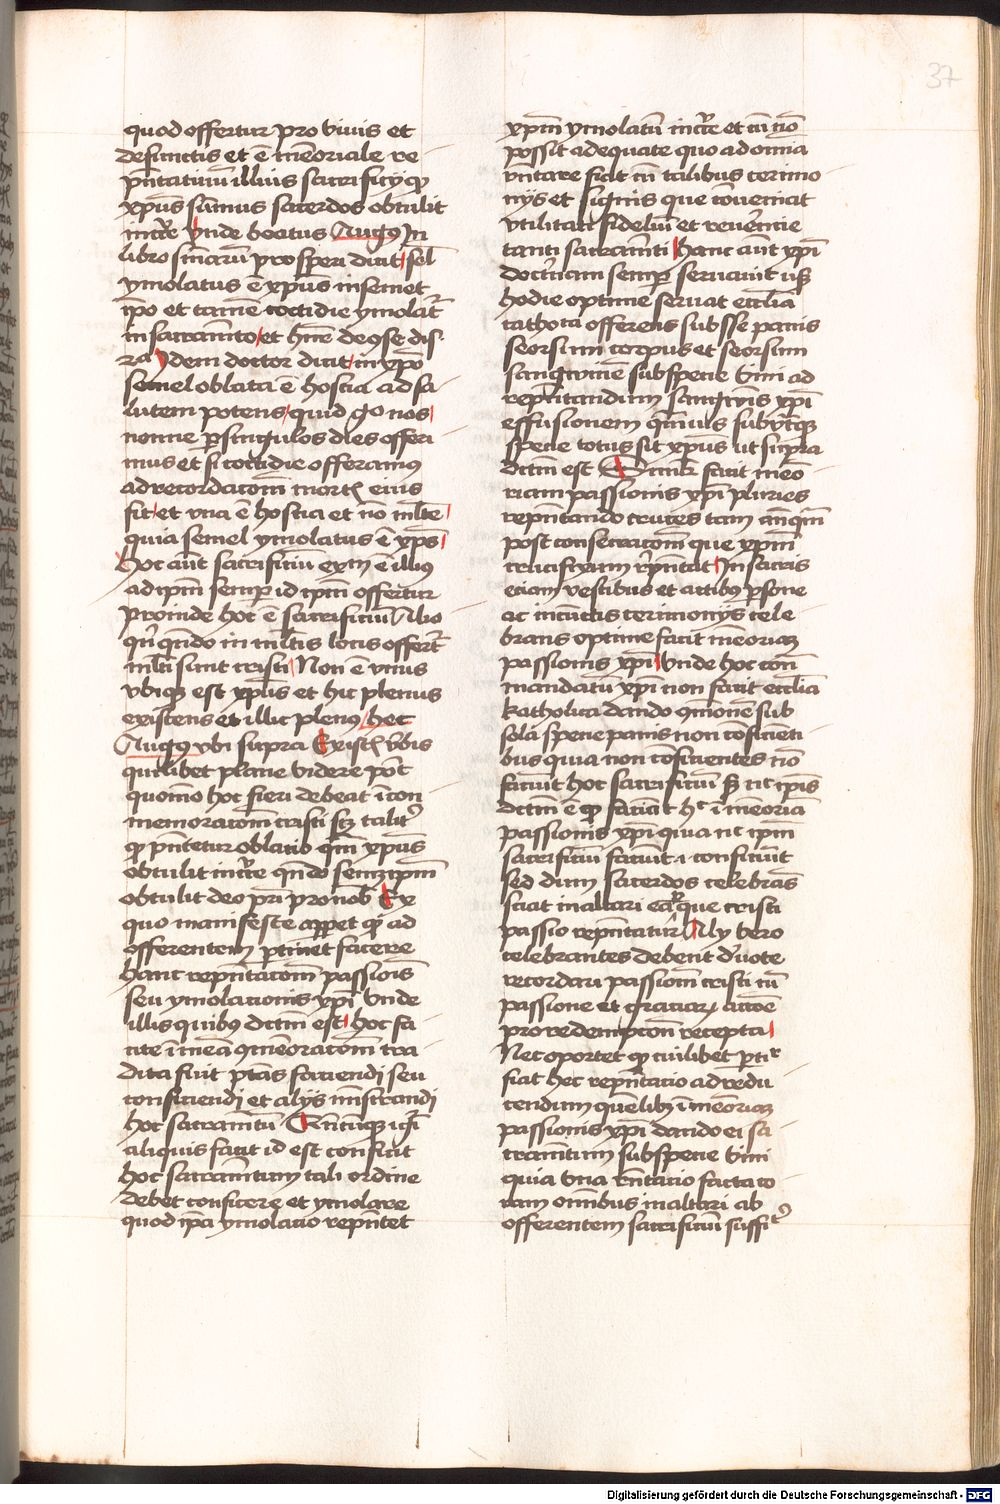 37
quod offertur pro viuis et
defunctis et ē mēoriale re
pn̄tatiuū illius sacrificij qͥ
xp̄us sūmus sacerdos obtulit
in cruce vnde beatus Augꝰ in
libro sn̄iarū prosperi dicit sel̄
ymolatus ē xp̄us in semet
ip̄o et tamē cottidie ymolat̄
in sacramēto et hr̄ de ꝯse dis
2a Idem doctor dicit in xp̄o
semel oblata ē hostia ad sa
lutem potens quid gͦ nos
nonne ꝑ singulos dies offeri
mus et si cottidie offeramꝰ
ad recordacōm mortꝭ eius
fit et vna ē hostia et nō ml̄te
quia semel ymolatus ē xp̄s
Hoc aūt sacrificiū exm̄ ē illiꝰ
ad ip̄m semꝑ id ip̄m offertur
proinde hoc ē sacrificiū Alio
qn̄ qn̄do in ml̄tis locis offert̄
ml̄ti sunt cristi Non ē vnus
vbiqꝫ est xp̄us et hic plenus
existens et illic plenꝰ hec
Augꝰ vbi supra Ex istꝭ v̄bis
quilibet plane videre pōt
quomō hoc fieri debeat ī con
memoracōm cristi sꝫ talit̄
qͥ pn̄tetur oblatio qm̄ xp̄us
obtulit in cruce qn̄do semetip̄m
obtulit deo pr̄i pro nob̄ Ex
quo manifeste apparet qͥ ad
offerentem ꝑtinet facere
hanc repn̄tacōm passiōis
seu ymolacionis xp̄i Vnde
illis quibꝰ dictm̄ est hoc fa
cite ī meā ꝯmēoracōm tra
dita fuit ptās faciendi seu
conficiendi et alijs mīstrandi
hoc sacramētū Qn̄cūqꝫ igr̄
aliquis facit id est conficit
hoc sacramētum tali ordine
debet conficere et ymolare
quod ip̄a ymolacio repn̄tet
xp̄m ymolatū in cruce et cū nō
possit adequate quo ad omnia
pn̄tare fiat cū talibus cerimo
nijs et signis que cōueniat
vtilitati fideliū et reuerencie
tanti sacramēti Hanc aūt xp̄i
doctrinam semꝑ seruauit usqꝫ
hodie optime seruat eccl̄ia
catholica offerens sub sp̄e panis
seorsim corpus et seorsim
sanguinem sub specie vini ad
repn̄tandum sanguinis xp̄i
effusionem qm̄uis sub vtraqꝫ
specie totus sit xp̄us ut supra
dictm̄ est facit meō
riam passionis xp̄i pluries
repn̄tando cruces tam an̄ qm̄
post consecracōm que xp̄m
crucifixum repn̄tat In sacris
etiam vestibus et actibꝰ ꝑsone
ac in cunctis cerimonijs cele
brans optime facit mēoriaꝫ
passionis xp̄i Vnde hoc con
mandatū xp̄i non facit eccl̄ia
katholica dando ꝯmunionē sub
sola specie panis non conficienti
bus quia non conficientes nō
faciūt hoc sacrificiū sꝫ nc̄ ip̄is
dictm̄ ē qͥ faciat hͦ ī mēoriā
passionis xp̄i quia nc̄ ip̄m
sacrificiū faciūt .i. conficiūt
sed dum sacerdos celebrās
sciat in altari ea que cristi
passio repn̄tatur Alij vero
celebrantes debent deuote
recordari passiom̄ cristi cū
passione et graciaꝝ actōe
pro redempcōn recepta
Nec oportet qͥ cuilibet ꝑtiͬ
fiat hec repn̄tacio ad redu
cendum quēlibꝫ ī mēoriaꝫ
passionis xp̄i dando ei sa
cramentum sub specie vini
quia vna repn̄tacio facta co
ram omībus in altari ab
offerentem sacrificiū suffiͭ
Digitalisierung gefördert durch die Deutsche Forschungsgemeinschaft - DFG